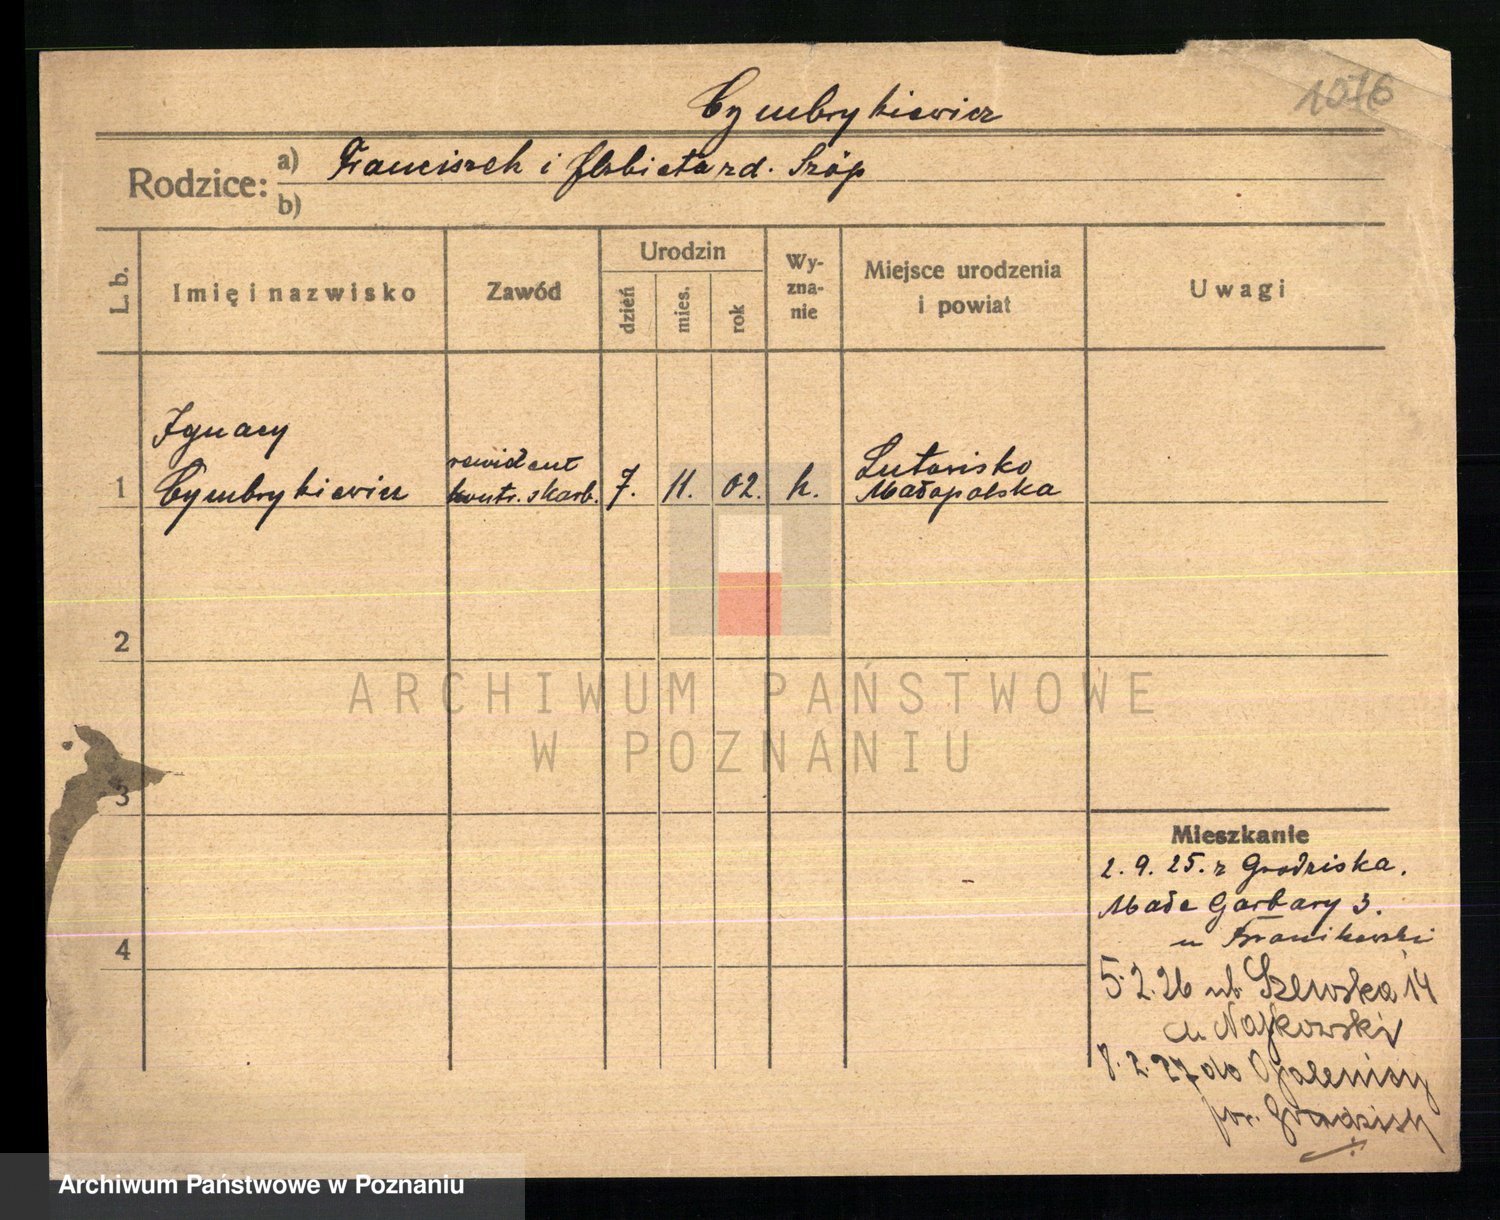 1076
Cymbrykiewicz
Rodzice: a) Franciszek i Elżbieta zd. Szóp
b)
L. b.
Imię i nazwisko
Zawód
Urodzin
dzień
mies.
rok
Wy-
zna-
nie
Miejsce urodzenia
i powiat
Uwagi
Ignacy
1 Cymbrykiewicz
rewident
kontr. skarb.
7. 11. 02. k.
Lutorisko
Małopolska
2
3
4
Mieszkanie
2. 9. 25. z Grodziska.
Małe Garbary 3.
u
5.2.26 ul. Szewska 14
Najkowski
8.2.27 do Opalenicy
pow. Grodzisk
ARCHIWUM PAŃSTWOWE
W POZNANIU
Archiwum Państwowe w Poznaniu